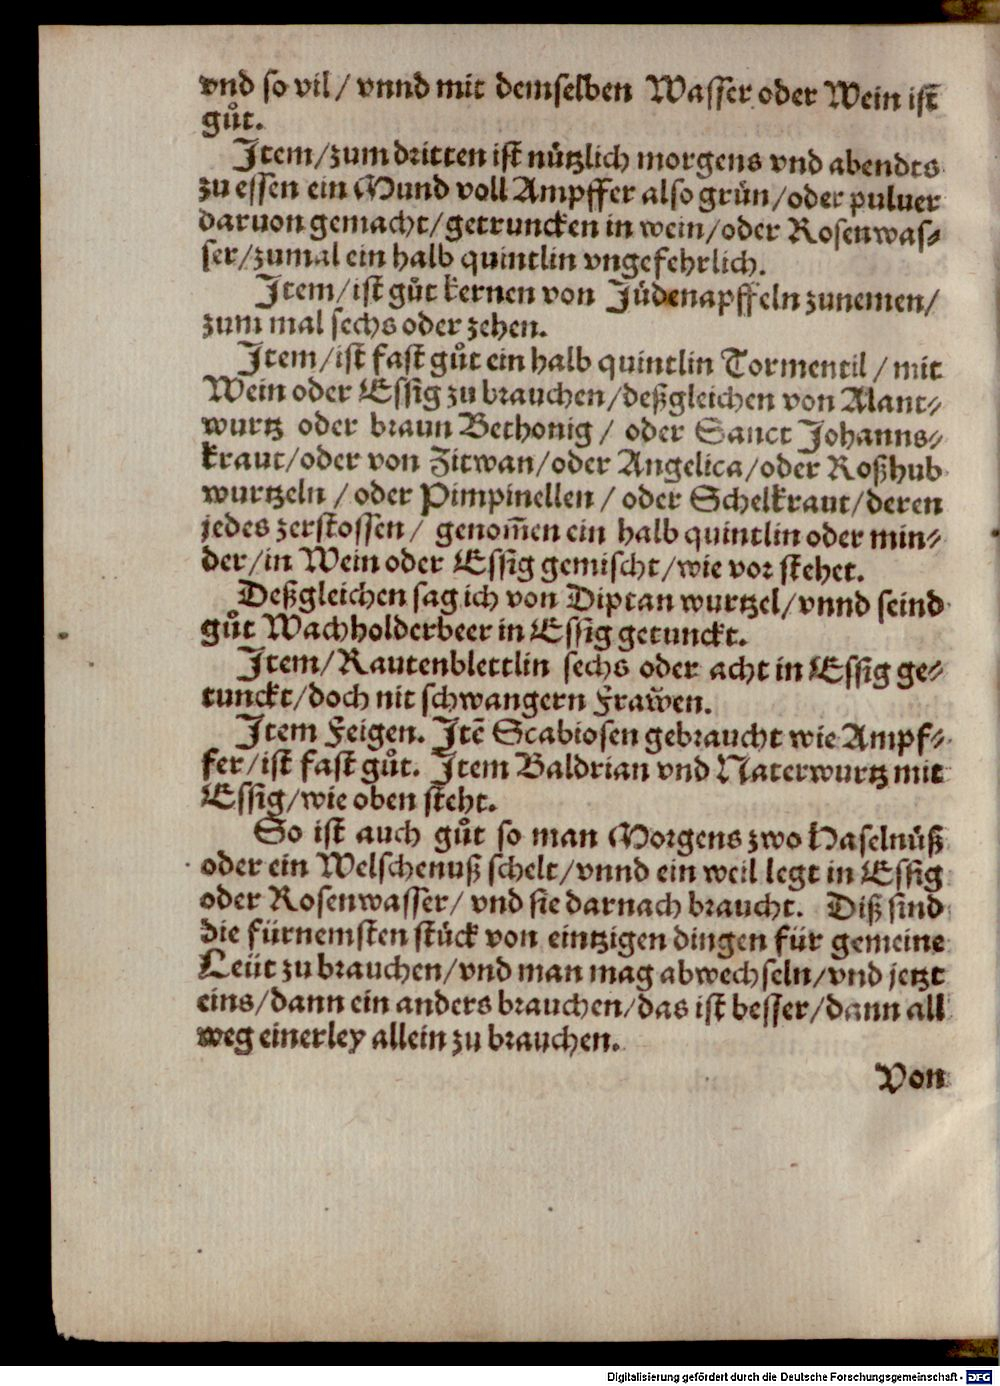 vnd so vil / vnnd mit demselben Wasser oder Wein ist
gůt.
Item/zum dritten ist nützlich morgens vnd abendts
zu essen ein Mund voll Ampffer also grün/oder puluer
daruon gemacht/getruncken in wein/oder Rosenwas⸗
ser/zumal ein halb quintlin vngefehrlich.
Item/ist gůt kernen von Jüdenapffeln zunemen/
zum mal sechs oder zehen.
Item/ist fast gůt ein halb quintlin Tormentil / mit
Wein oder Essig zu brauchen/deßgleichen von Alant⸗
wurtz oder braun Bethonig / oder Sanct Johanns⸗
kraut/oder von Zitwan/oder Angelica/oder Roßhub
wurtzeln / oder Pimpinellen / oder Schelkraut/deren
jedes zerstossen / genom̃en ein halb quintlin oder min⸗
der/in Wein oder Essig gemischt/wie vor stehet.
Deßgleichen sag ich von Diptan wurtzel/vnnd seind
gůt Wachholderbeer in Essig getunckt.
Item/Rautenblettlin sechs oder acht in Essig ge⸗
tunckt/doch nit schwangern Frawen.
Item Feigen. Itē Scabiosen gebraucht wie Ampf⸗
fer/ist fast gůt. Item Baldrian vnd Naterwurtz mit
Essig/wie oben steht.
So ist auch gůt so man Morgens zwo Haselnüß
oder ein Welschenuß schelt/vnnd ein weil legt in Essig
oder Rosenwasser/ vnd sie darnach braucht. Diß sind
die fürnemsten stück von eintzigen dingen für gemeine
Leüt zu brauchen/vnd man mag abwechseln/vnd jetzt
eins/dann ein anders brauchen/das ist besser/dann all
weg einerley allein zu brauchen.
Von
Digitalisierung gefördert durch die Deutsche Forschungsgemeinschaft - DFG